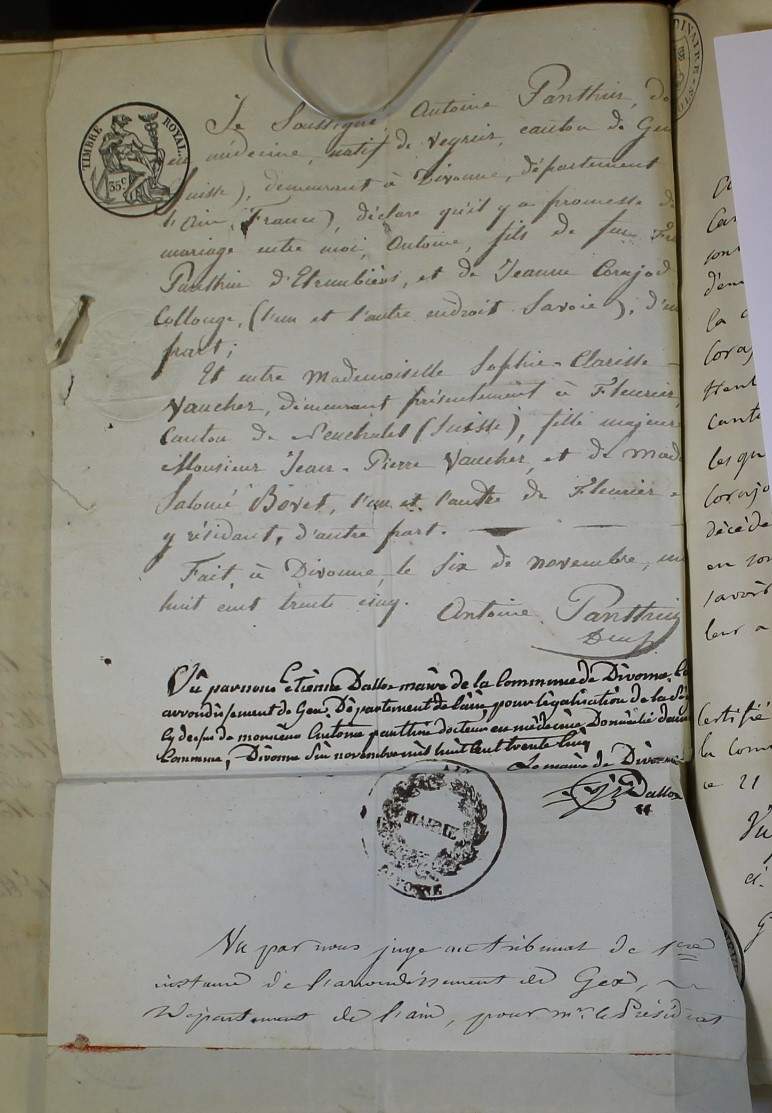 TIMBRE ROYAL.
35c
Je Soussigné Antoine Panthin, do
en médecine, natif de Veyrier, canton de Gen
Suisse), demeurant à Divonne, département
l'Ain, France), déclare qu'il y a promesse de
mariage entre moi, Antoine, fils de feu
Panthin d'Etrembières, et de Jeanne Corajod
Collonge, (l'un et l'autre endroit Savoie), d'un
part;
Et entre Mademoiselle Sophie-Clarisse
Vaucher, demeurant présentement à Fleurier,
Canton de Neuchatel (Suisse), fille majeure
Monsieur Jean-Pierre Vaucher, et de Mad
Salomé Bovet, l'un et l'autre de Fleurier
y résidant, d'autre part.
Fait à Divonne, le Six de novembre, m
huit cent trente cinq. Antoine Panthin
Vû par nous Etienne Dallox maire de la Commune de Divonne,
arrondissement de Gex, Département de l'ain, pour légalisation de la
de monsieur Antoine panthin docteur en médecine Domicilié dans
Commune, Divonne Six novembre mil huit Cent trente Cinq
Le maire de Divonne
Dallox
MAIRIE
DIVONNE
Vu par nous juge au tribunal de 1ere
instance de l'arrondissement de Gex,
Département de l'ain, pour mr. le Président
la
décédé
en
savoir
leur a
Certifié
la Com
ce 21
Vu